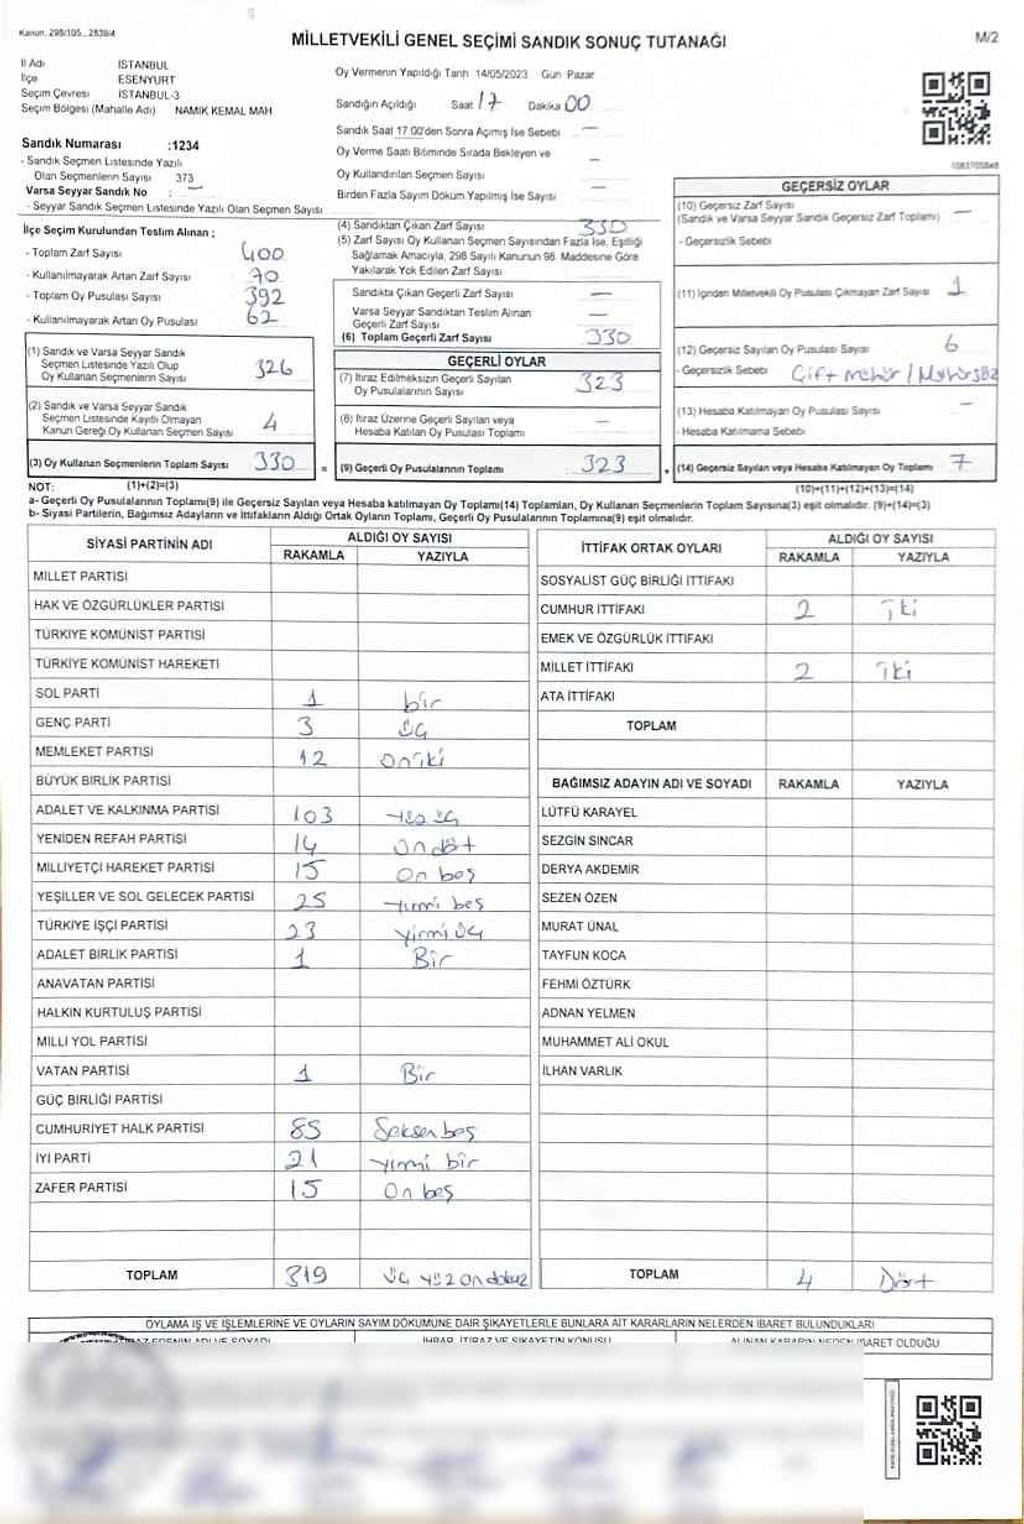 Kanun. 298/105., 2839/4
MİLLETVEKİLİ GENEL SEÇİMİ SANDIK SONUÇ TUTANAĞI
M/2
İl Adı İSTANBUL
İlçe ESENYURT
Seçim Çevresi İSTANBUL-3
Seçim Bölgesi (Mahalle Adı) NAMIK KEMAL MAH
Sandık Numarası :1234
- Sandık Seçmen Listesinde Yazılı
Olan Seçmenlerin Sayısı 373
Varsa Seyyar Sandık No : —
- Seyyar Sandık Seçmen Listesinde Yazılı Olan Seçmen Sayısı
Oy Vermenin Yapıldığı Tarih 14/05/2023 Gün Pazar
Sandığın Açıldığı Saat 17 Dakika 00
Sandık Saat 17.00'den Sonra Açımış İse Sebebi —
Oy Verme Saati Bitiminde Sırada Bekleyen ve —
Oy Kullandırılan Seçmen Sayısı
Birden Fazla Sayım Döküm Yapılmış İse Sayısı —
İlçe Seçim Kurulundan Teslim Alınan ;
- Toplam Zarf Sayısı 400
- Kullanılmayarak Artan Zarf Sayısı 70
- Toplam Oy Pusulası Sayısı 392
- Kullanılmayarak Artan Oy Pusulası 62
(1) Sandık ve Varsa Seyyar Sandık
Seçmen Listesinde Yazılı Olup
Oy Kullanan Seçmenlerin Sayısı 326
(2) Sandık ve Varsa Seyyar Sandık
Seçmen Listesinde Kayıtlı Olmayan
Kanun Gereği Oy Kullanan Seçmen Sayısı 4
(3) Oy Kullanan Seçmenlerin Toplam Sayısı 330 =
(4) Sandıktan Çıkan Zarf Sayısı 330
(5) Zarf Sayısı Oy Kullanan Seçmen Sayısından Fazla İse, Eşitliği
Sağlamak Amacıyla, 298 Sayılı Kanunun 98. Maddesine Göre
Yakılarak Yok Edilen Zarf Sayısı
Sandıkta Çıkan Geçerli Zarf Sayısı —
Varsa Seyyar Sandıktan Teslim Alınan
Geçerli Zarf Sayısı —
(6) Toplam Geçerli Zarf Sayısı 330
GEÇERLİ OYLAR
(7) İtiraz Edilmeksizin Geçerli Sayılan
Oy Pusulalarının Sayısı 323
(8) İtiraz Üzerine Geçerli Sayılan veya
Hesaba Katılan Oy Pusulası Toplamı —
(9) Geçerli Oy Pusulalarının Toplamı 323
GEÇERSİZ OYLAR
(10) Geçersiz Zarf Sayısı
(Sandık ve Varsa Seyyar Sandık Geçersiz Zarf Toplamı) —
- Geçersizlik Sebebi
(11) İçinden Milletvekili Oy Pusulası Çıkmayan Zarf Sayısı 1
(12) Geçersiz Sayılan Oy Pusulası Sayısı 6
- Geçersizlik Sebebi Çift mühür / Mühürsüz
(13) Hesaba Katılmayan Oy Pusulası Sayısı —
- Hesaba Katılmama Sebebi
(14) Geçersiz Sayılan veya Hesaba Katılmayan Oy Toplamı 7
NOT: (1)+(2)=(3)
(10)+(11)+(12)+(13)=(14)
a- Geçerli Oy Pusulalarının Toplamı(9) ile Geçersiz Sayılan veya Hesaba katılmayan Oy Toplamı(14) Toplamları, Oy Kullanan Seçmenlerin Toplam Sayısına(3) eşit olmalıdır. (9)+(14)=(3)
b- Siyasi Partilerin, Bağımsız Adayların ve İttifakların Aldığı Ortak Oyların Toplamı, Geçerli Oy Pusulalarının Toplamına(9) eşit olmalıdır.
SİYASİ PARTİNİN ADI ALDIĞI OY SAYISI
RAKAMLA YAZIYLA
MİLLET PARTİSİ
HAK VE ÖZGÜRLÜKLER PARTİSİ
TÜRKİYE KOMÜNİST PARTİSİ
TÜRKİYE KOMÜNİST HAREKETİ
SOL PARTİ 1 bir
GENÇ PARTİ 3 üç
MEMLEKET PARTİSİ 12 oniki
BÜYÜK BİRLİK PARTİSİ
ADALET VE KALKINMA PARTİSİ 103 yüz üç
YENİDEN REFAH PARTİSİ 14 on döt
MİLLİYETÇİ HAREKET PARTİSİ 15 on beş
YEŞİLLER VE SOL GELECEK PARTİSİ 25 yirmi beş
TÜRKİYE İŞÇİ PARTİSİ 23 yirmi üç
ADALET BİRLİK PARTİSİ 1 Bir
ANAVATAN PARTİSİ
HALKIN KURTULUŞ PARTİSİ
MİLLİ YOL PARTİSİ
VATAN PARTİSİ 1 Bir
GÜÇ BİRLİĞİ PARTİSİ
CUMHURİYET HALK PARTİSİ 85 Seksen beş
İYİ PARTİ 21 yirmi bir
ZAFER PARTİSİ 15 On beş
TOPLAM 319 üç yüz on dokuz
İTTİFAK ORTAK OYLARI ALDIĞI OY SAYISI
RAKAMLA YAZIYLA
SOSYALİST GÜÇ BİRLİĞİ İTTİFAKI
CUMHUR İTTİFAKI 2 iki
EMEK VE ÖZGÜRLÜK İTTİFAKI
MİLLET İTTİFAKI 2 iki
ATA İTTİFAKI
TOPLAM
BAĞIMSIZ ADAYIN ADI VE SOYADI RAKAMLA YAZIYLA
LÜTFÜ KARAYEL
SEZGİN SINCAR
DERYA AKDEMİR
SEZEN ÖZEN
MURAT ÜNAL
TAYFUN KOCA
FEHMİ ÖZTÜRK
ADNAN YELMEN
MUHAMMET ALİ OKUL
İLHAN VARLIK
TOPLAM 4 Dört
OYLAMA İŞ VE İŞLEMLERİNE VE OYLARIN SAYIM DÖKÜMÜNE DAİR ŞİKAYETLERLE BUNLARA AİT KARARLARIN NELERDEN İBARET BULUNDUKLARI
İHBAR, İTİRAZ VE ŞİKAYETİN KONUSU ALINAN KARARIN NEDEN İBARET OLDUĞU